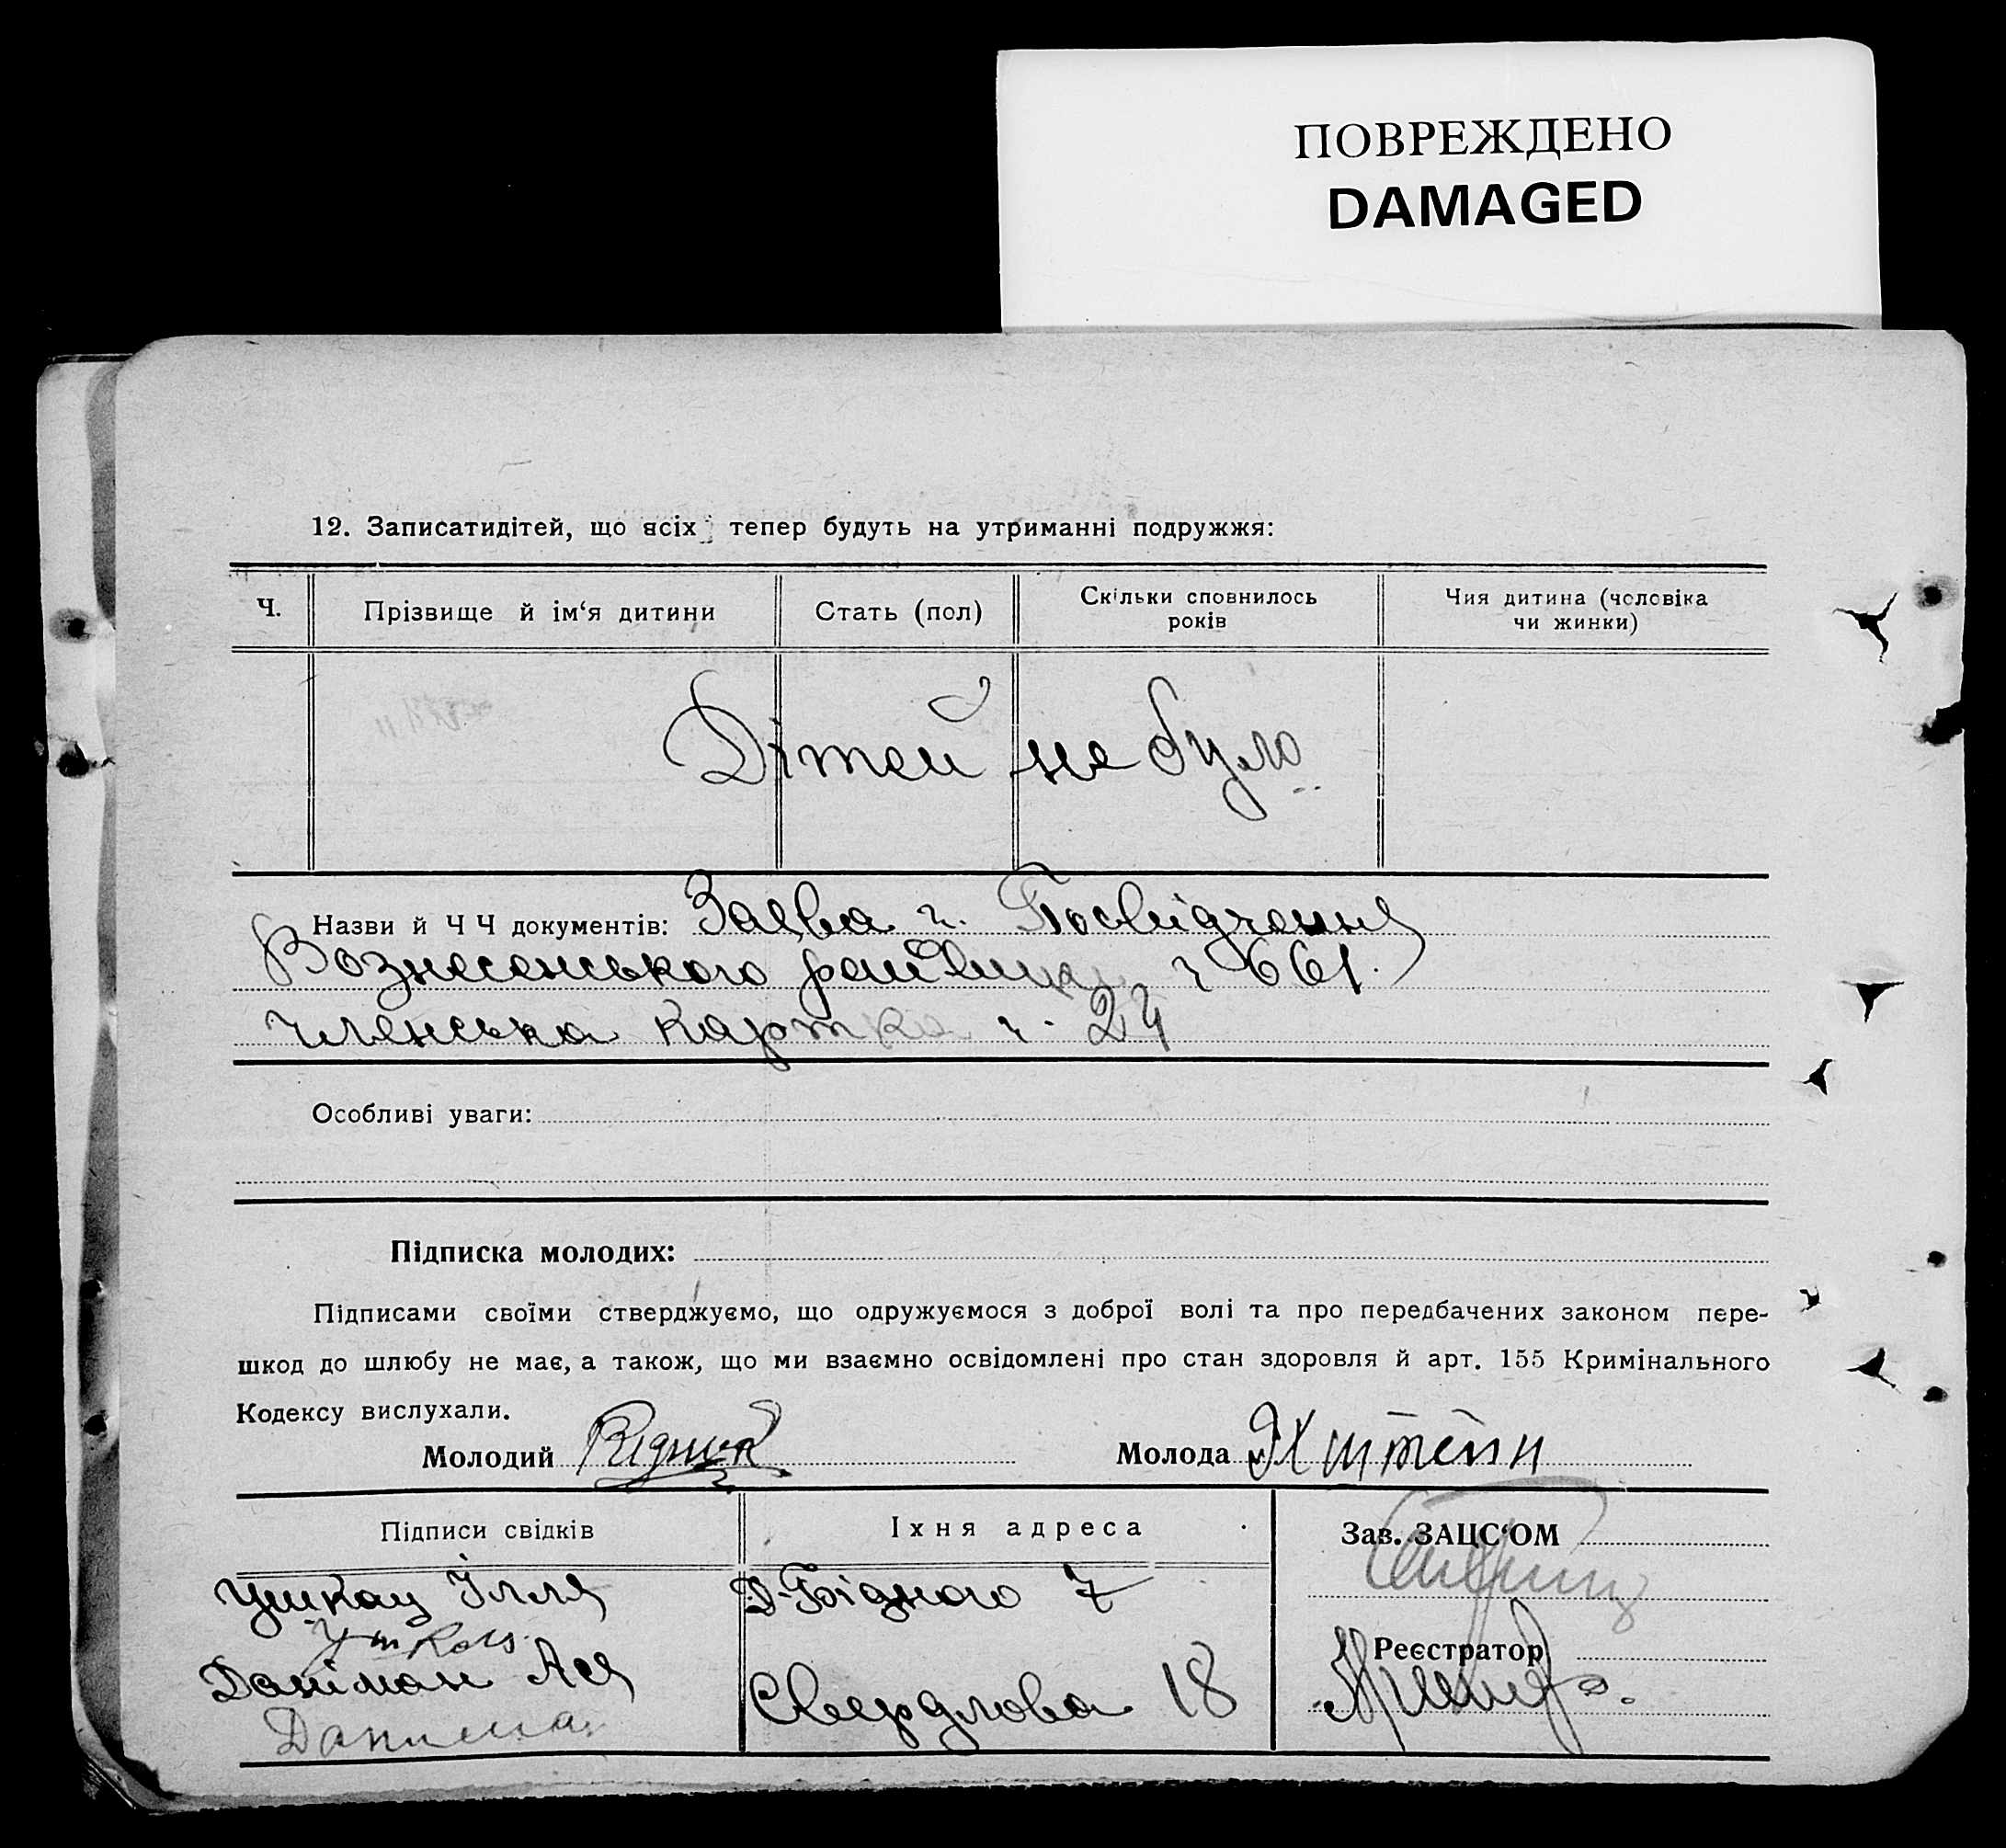 ПОВРЕЖДЕНО
DAMAGED
12. Записатидітей, що всіх тепер будуть на утриманні подружжя:
Ч.
Прізвище й ім‘я дитини
Стать (пол)
Скільки сповнилось
років
Чия дитина (чоловіка
чи жинки)
Дітей не було
Назви й Ч Ч документів: Заява ч. Посвідчення
Вознесенського ч 661.
членська картка ч. 24
Особливі уваги:
Підписка молодих:
Підписами своїми стверджуємо, що одружуємося з доброї волі та про передбачених законом пере-
шкод до шлюбу не має, а також, що ми взаємно освідомлені про стан здоровля й арт. 155 Кримінального
Кодексу вислухали.
Молодий Відник
Молода штейн
Підписи свідків
Їхня адреса
Зав. ЗАЦС‘ОМ
Ушкац Ілля
Д-Бідного 7
Реєстратор
Даніман Ася
Свердлова 18